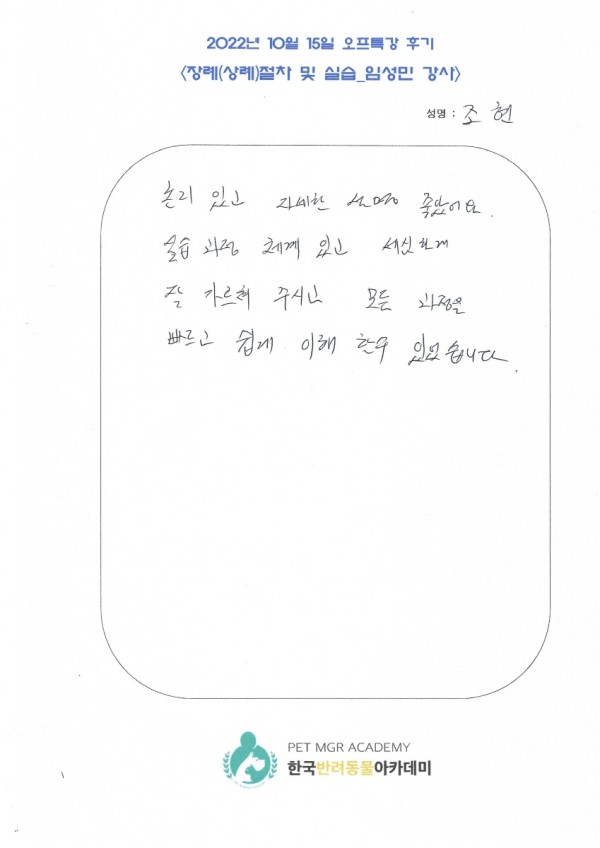 2022년 10월 15일 오프특강 후기
<장례(상례)절차 및 실습_임성민 강사>
성명 : 조현
논리 있고 자세한 설명 좋았어요.
실습 과정 체계 있고 세심하게
잘 가르쳐 주시고 모든 과정을
빠르고 쉽게 이해 할수 있었습니다.
PET MGR ACADEMY
한국반려동물아카데미